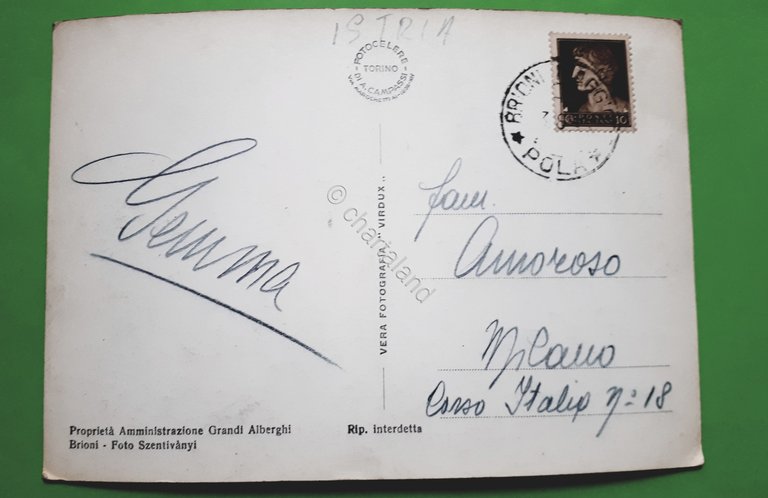 ISTRIA
FOTOCELERE
TORINO
DI A. CAMPASSI
BRIONI MAGGIORE
POLA
10
Gemma
fam.
Amoroso
Milano
Corso Italia nº 18
VERA FOTOGRAFIA "VIRDUX"
© chartaland
Proprietà Amministrazione Grandi Alberghi
Brioni - Foto Szentiványi
Rip. interdetta